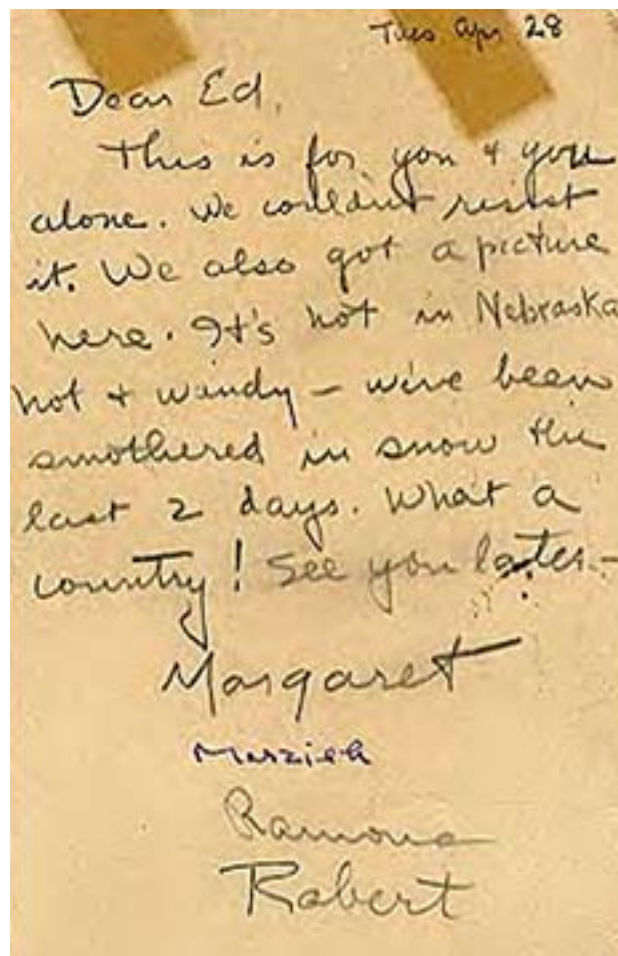 Tues Apr 28
Dear Ed,
This is for you & you
alone. We couldn't resist
it. We also got a picture
here. It's hot in Nebraska
hot & windy – we've been
smothered in snow the
last 2 days. What a
country! See you later –
Margaret
Marzieh
Ramona
Robert